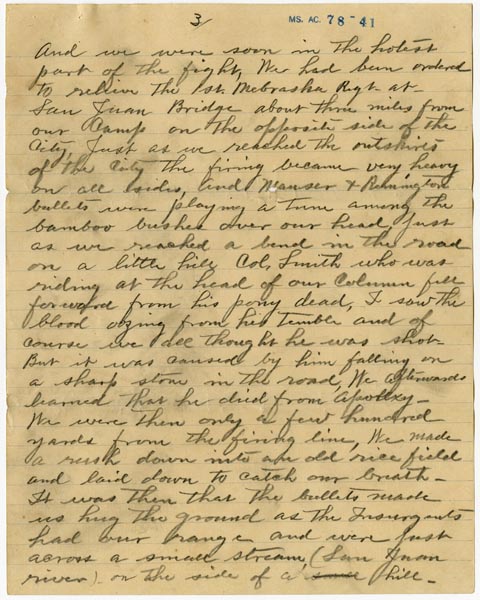 3
MS. AC. 78-41
And we were soon in the hotest
part of the fight, We had been ordered
to relieve the 1st Nebraska Rgt at
San Juan Bridge about three miles from
our Camp on the opposite side of the
City, Just as we reached the outskires
of the City the firing became very heavy
on all sides, and Mauser & Remington
bullets were playing a tune among the
bamboo bushes over our head, Just
as we reached a bend in the road
on a little hill Col, Smith who was
riding at the head of our Column fell
forward from his pony dead, I saw the
blood ozing from his temble and of
course we all thought he was shot-
But it was caused by him falling on
a sharp stone in the road, We afterwards
learned that he died from Apoplexy-
We were then only a few hundred
yards from the firing line, We made
a rush down into an old rice field
and laid down to catch our breath-
It was then that the bullets made
us hug the ground as the Insurgents
had our range and were just
across a small stream, (San Juan
river) on the side of a hill-